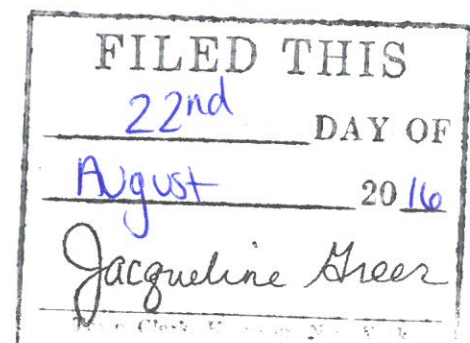 FILED THIS
22nd DAY OF
August 2016
Jacqueline Greer
Town Clerk, New York